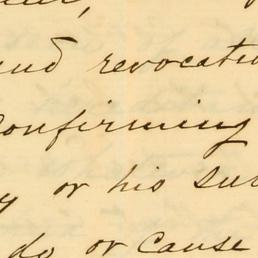 and revocati
confirming
y or his su
do or cause